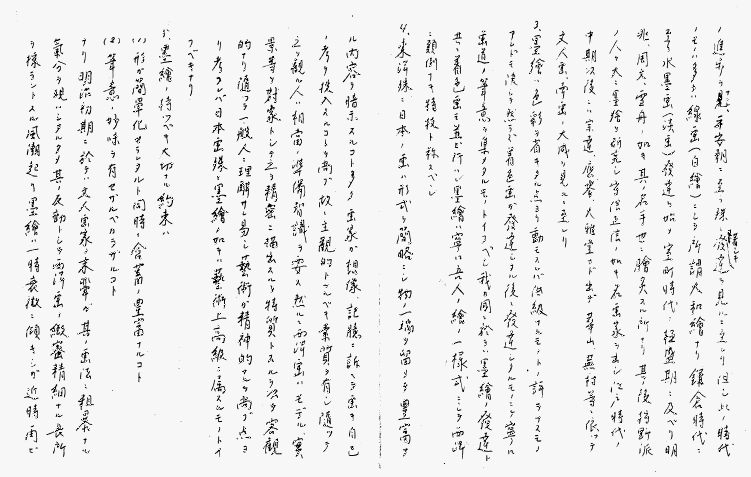 ノ進歩ヲ見平安朝ニ至ツテ殊ニ発達ヲ見ルニ至レリ但シ此ノ時代
ノモノハ多ク線画(白絵)ニシテ所謂大和繪ナリ鎌倉時代ニ
至リ水墨画(淡画)発達シ始メ室町時代ニ極盛期ニ及ベリ明
兆、周文、雪舟ノ如キ其ノ名手世ニ膾炙スル所ナリ其ノ後狩野派
ノ人々大ニ墨繪ヲ研究シ
中期以後ニハ宗達、應挙、大雅堂ナド出デ崋山、蕪村等ニ依ッテ
文人画、南画ノ大成ヲ見ルニ至レリ
3、墨繪ハ色彩ヲ省キタル点ヨリ動モスレバ低級ナルモノト評ラフスモノ
アレド決シテ然ラズ着色画ガ発達シタル後ニ発達シタルモノニシテ寧ロ
画道ノ筆意ヲ集メタルモノトイフベシ我ガ国ニ於テハ墨繪ノ発達ト
共ニ着色画モ並ビ行ハレ墨繪ハ寧ロ吾人ノ繪ノ一様式ニシテ西洋
ニ類例ナキ特技ト称スベシ
4、東洋殊ニ日本ノ画ハ形式ヲ簡略ニシ物ノ一端ヲ留メテ豊富ナ
ル内容ヲ暗示スルコト多ク画家ガ想像ト記憶ニ訴ヘテ画ヲ自己
ノ考ヲ投入スルコトヲ尚ブ故ニ主観的トナルベキ素質ヲ有シ随ッテ
之ヲ観ル人ハ相當ノ準備智識ヲ要ス然ルニ西洋画ハモデル、實
景等ヲ対象トシテ之ヲ精密ニ描出スルヲ特質トスルヲ以テ客観
的ナリ随ッテ一般人ニ理解サレ易シ藝術ガ精神的ナルヲ尚ブ点ヨ
リ考フレバ日本画殊ニ墨繪ノ如キハ藝術上高級ニ属スルモノトイ
フベキナリ
5、墨繪ノ持ツベキ大切ナル約束ハ
(1) 形ガ簡單化サレタルト同時ニ含蓄ノ豊富ナルコト
(2) 筆意ニ妙味ヲ有セザルベカラザルコト
ナリ明治初期ニ於テハ文人画家ガ其ノ画法ニ粗暴ナル
氣分ヲ現ハシタルタメ其ノ反動トシテ西洋画ノ緻密精細ナル長所
ヲ採ラントスル風潮起リ墨繪ハ一時衰微ニ傾キシガ近時再ビ